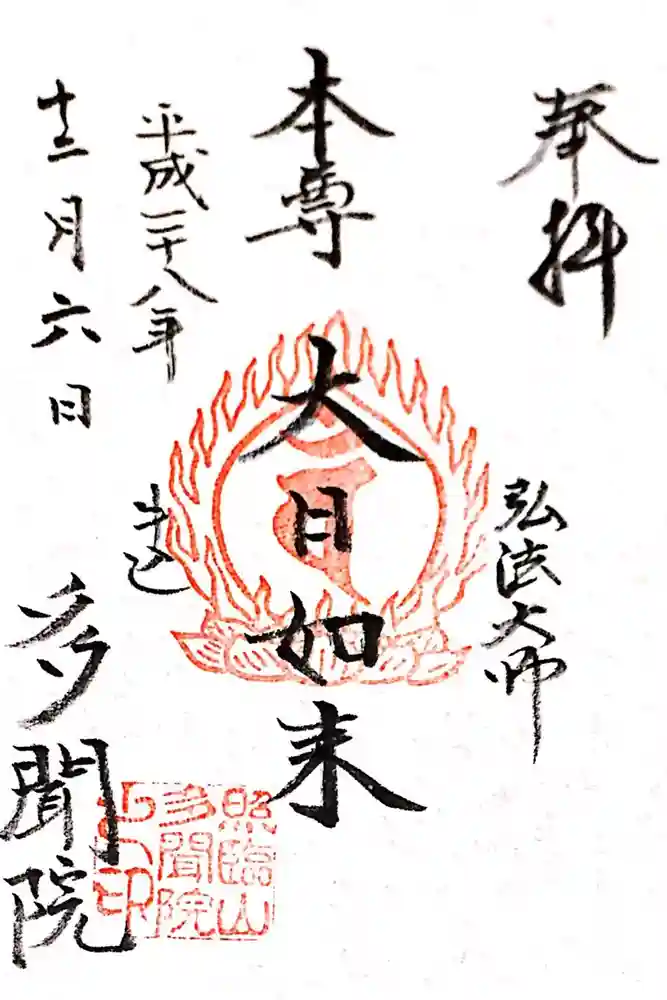 奉拝
弘法大師
本尊
大日如来
平成二十八年
十二月六日
牛込
多聞院
照臨山
多聞院
之印